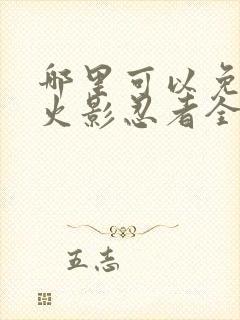 哪里可以免
火影忍者全
五志